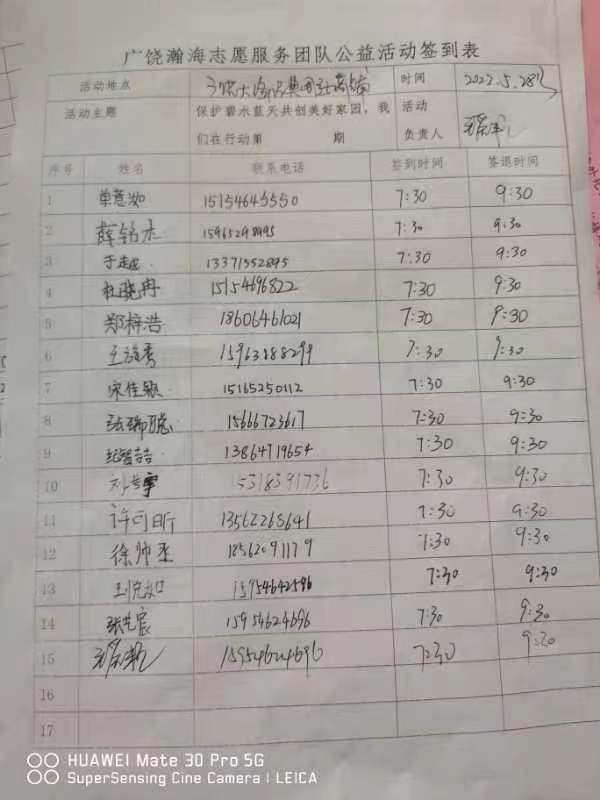 广饶瀚海志愿服务团队公益活动签到表
活动地点 时间 2022.5.28
活动主题 保护碧水蓝天共创美好家园，我 活动
们在行动第 期 负责人
序号 姓名 联系电话 签到时间 签退时间
1 单薏如 15154645550 7:30 9:30
2 薛铭杰 15965298495 7:30 9:30
3 于越 13371552895 7:30 9:30
4 杜晓冉 15154696822 7:30 9:30
5 郑梓浩 18606461021 7:30 9:30
6 7:30 9:30
7 宋佳颖 15165250112 7:30 9:30
8 张瑞聪 15666723617 7:30 9:30
9 13864719654 7:30 9:30
10 5318391736 7:30 9:30
11 许可昕 13562268641 7:30 9:30
12 徐帅丞 18562091179 7:30 9:30
13 15954642596 7:30 9:30
14 张艺宸 15954624696 7:30 9:30
15 15954624696 7:30 9:30
16
17
HUAWEI Mate 30 Pro 5G
SuperSensing Cine Camera | LEICA